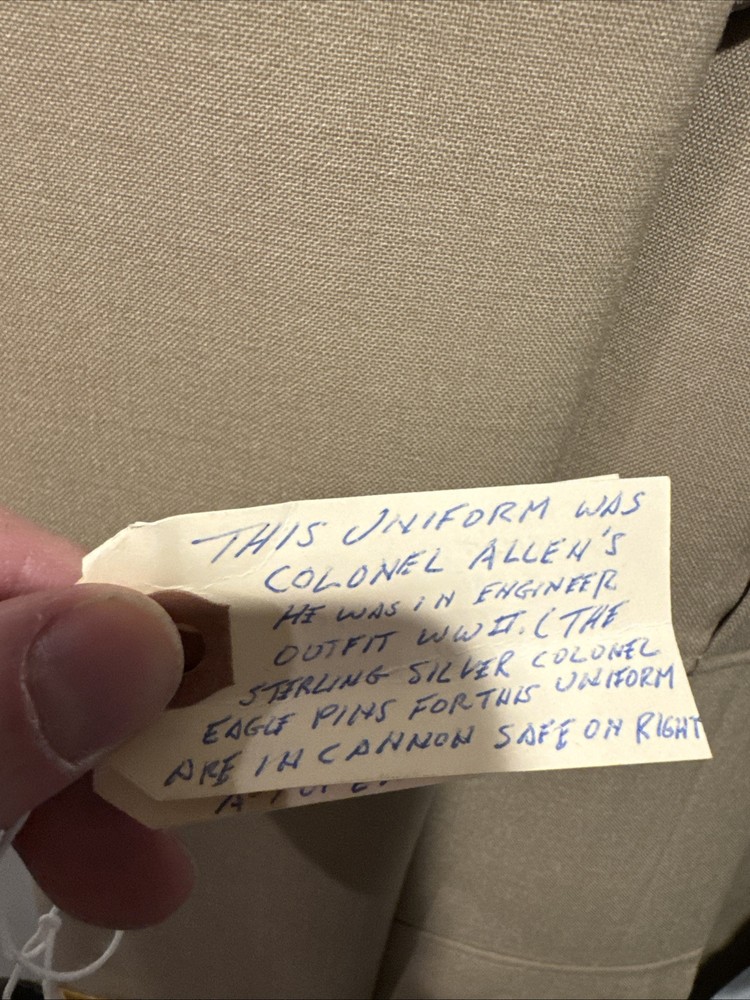 THIS UNIFORM WAS
COLONEL ALLEN'S
HE WAS IN ENGINEER
OUTFIT WWII. (THE
STERLING SILVER COLONEL
EAGLE PINS FOR THIS UNIFORM
ARE IN CANNON SAFE ON RIGHT